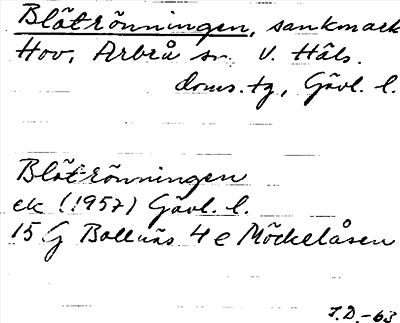 Blötrönningen, sankmark
Hov, Arbrå sn. V. Häls.
doms.tg, Gävl. l.
Blötrönningen
ek (1957) Gävl. l.
15 G Bollnäs 4 e Möckelåsen
J.D.-63